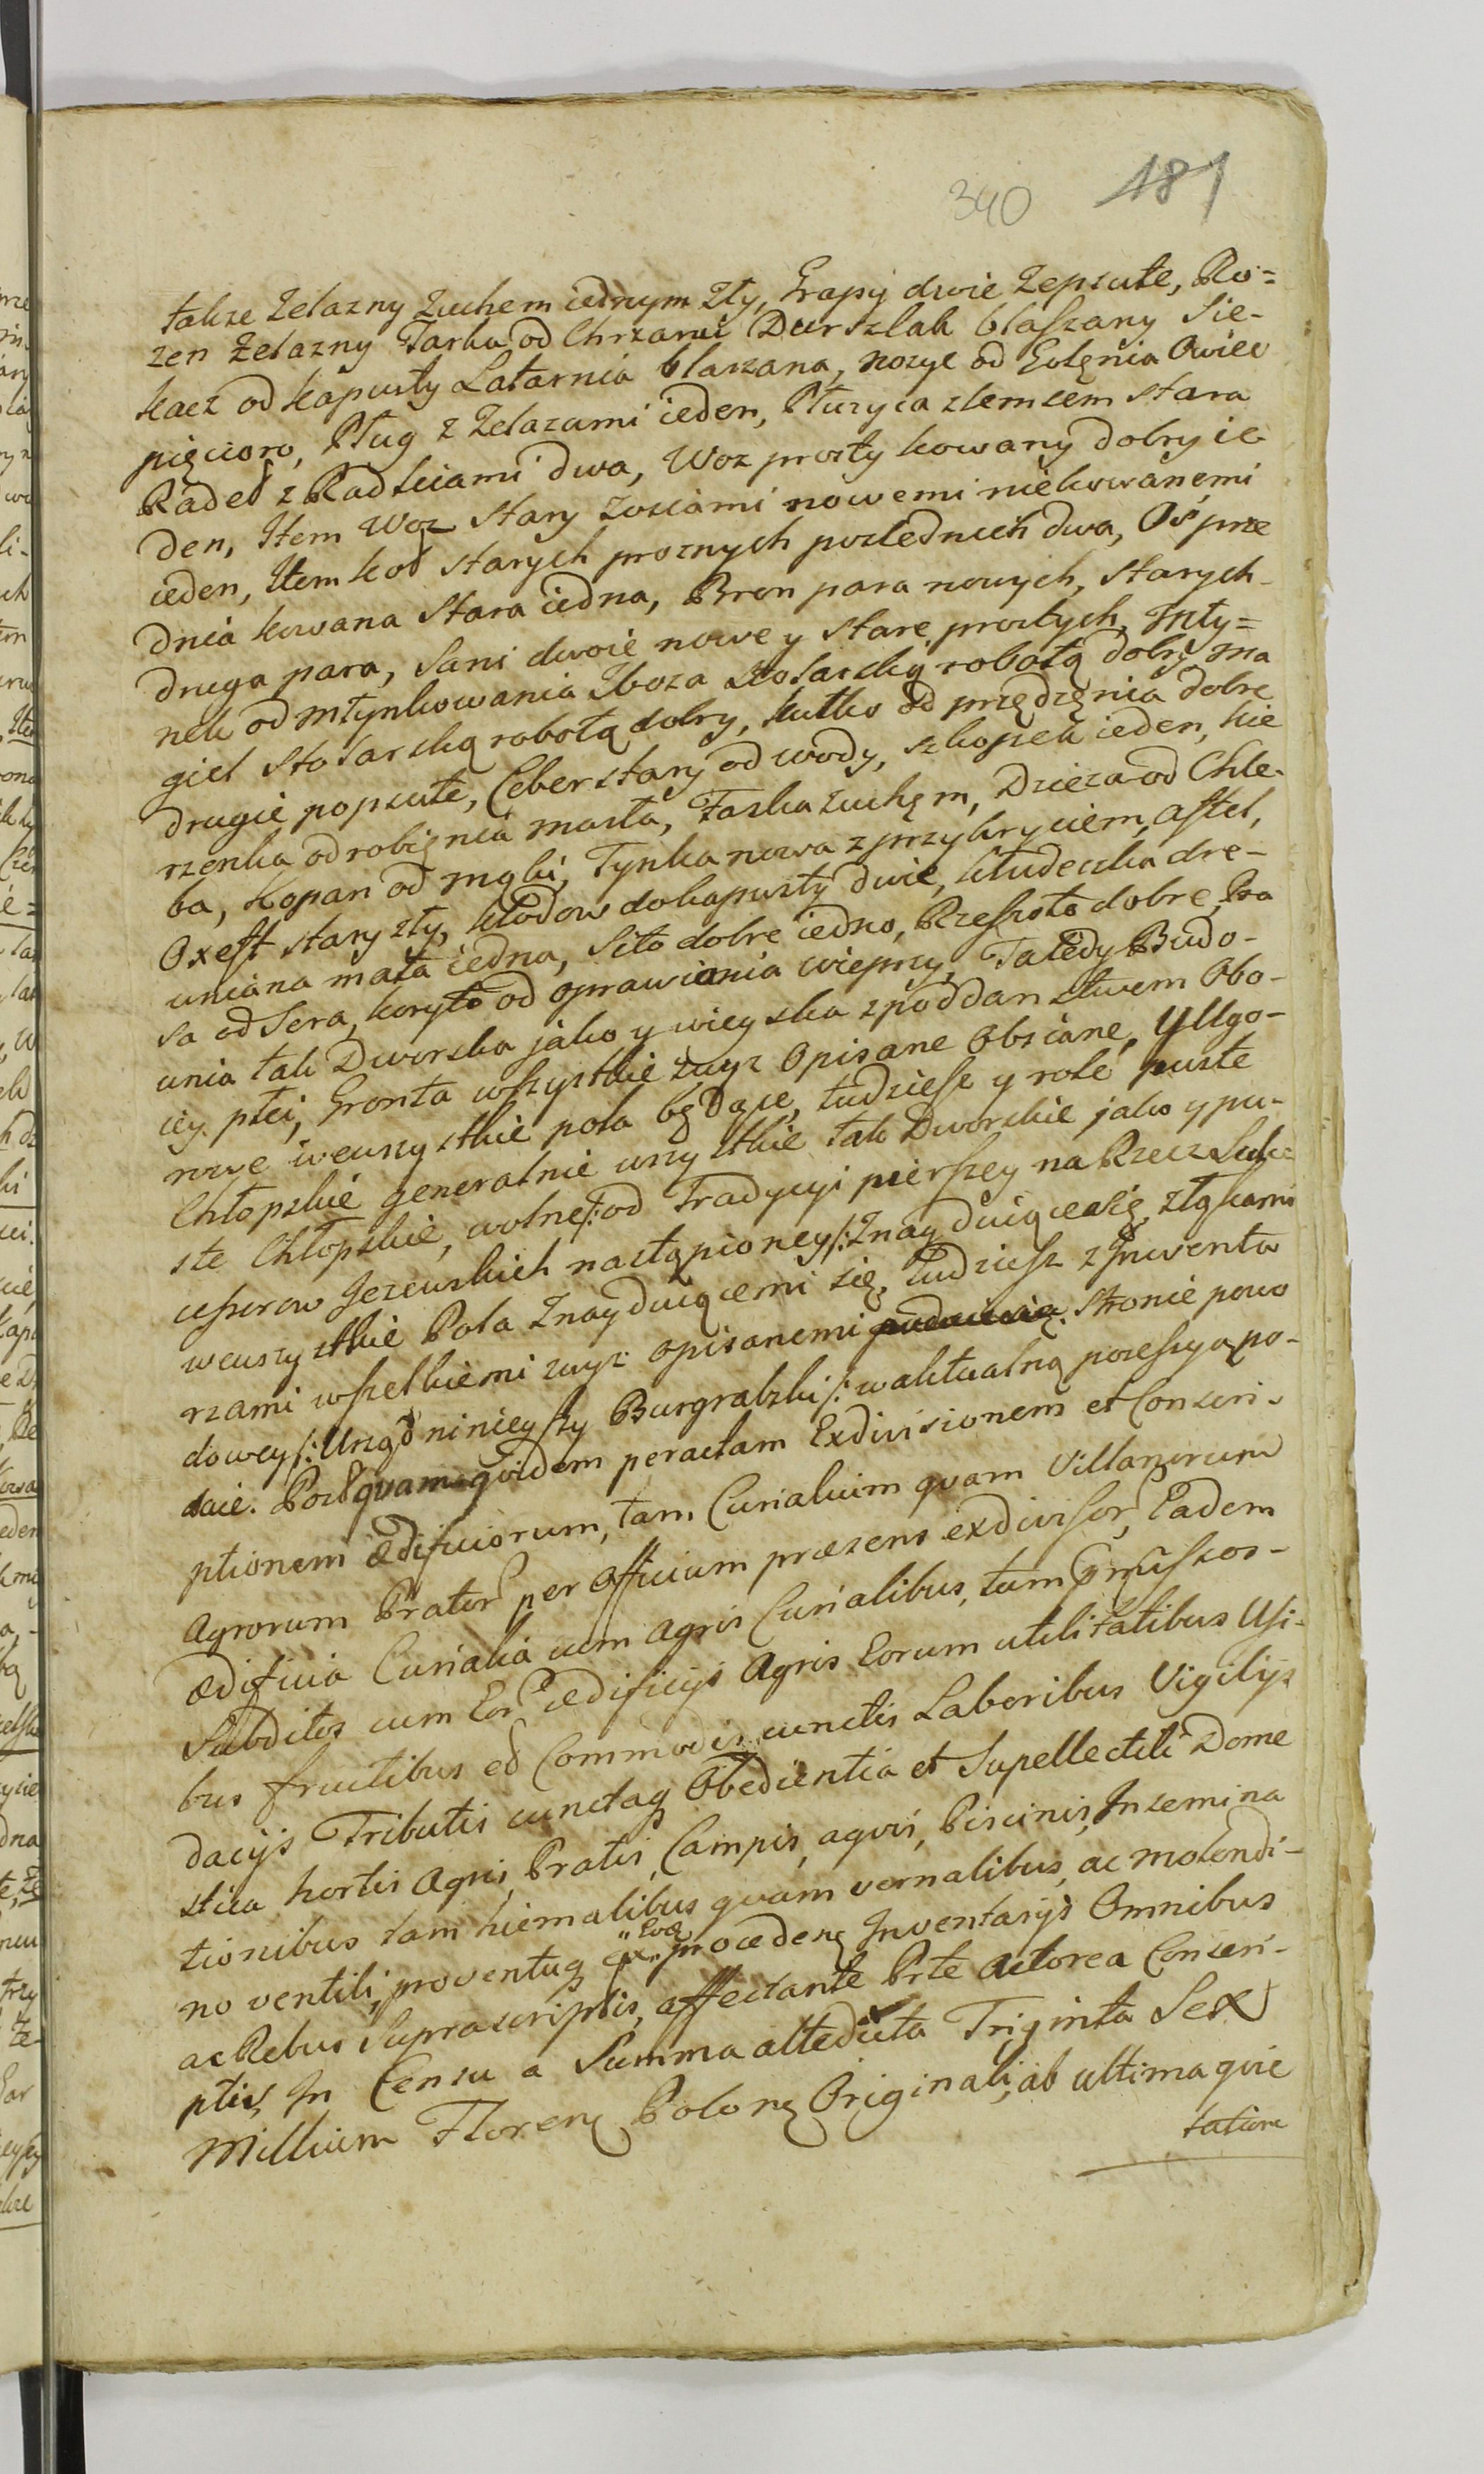 340 181
takze Zelazny Zuchem iednym Zły, Grapy dwie Zepsute, Ro=
zen Zelazny Tarka od Chrzanu Durszlak blaszany Sie-
kacz od kapusty Latarnia blaszana, nozyc od Golęnia Owiec
pięcioro, Pług z Zelazami ieden, Płuzyca zlemęszem stara
Radeł z Radlicami dwa, Woz prosty kowany dobry ie
den, Item Woz stary Zosiami nowemi niekowanemi
ieden, Item koł starych proznych poslednich dwa, Oś prze
dnia kowana stara iedna, Bron para nowych, starych
druga para, Sani dwoie nowe y stare prostych, Mły=
nek od młynkowania Zboza stolarską robotą dobry ma
giel stolarską robotą dobry, kułko od przędzęnia dobre
drugie popsute, Ceber stary od wody, szkopek ieden, kie
rzenka od robięnia masła, Faska Zuchęm, Dzieza od Chle-
ba, kopan od mąki, Tynka nowa z przykryciem, assel,
Oxeft stary zły, kłodow do kapusty dwie, kłudeczka dre-
wniana mała iedna, Sito dobre iedno, Rzeszoto dobre, Pra
sa od Sera, koryto od oprawiania wieprzy, Ta tedy Budo-
wnia tak Dworska jako y wieyska z poddanstwem Obo-
iey płci, Gronta wszystkie zwyz Opisane Obsiane, Y Ugo-
rowe wewszystkie pola będące, tudziesz y role puste
Chłopskie generalnie wszystkie tak Dworskie jako y pu-
ste Chłopskie, wolne /: od Tradycyi pierszey na Rzecz Suk-
cessorow Jezewskich nastąpioney /: Znayduiące się, z łąkami
wewszystkie Pola Znayduiącemi się, tudziesz z Inwenta
rzami wszelkiemi zwyz opisanemi Stronie powo
dowey /: Urząd ninieyszy Burgrabski /: w aktualną possessyą po-
daie. Post quam quidem peractam Exdivisionem et Conscri-
ptionem ædificiorum, tam Curialium quam Villanorum
Agrorum Prator per Officium præsens exdivisor Eadem
ædificia Curialia cum agris Curialibus, tum
Subditos cum Eor ædificijs Agris Eorum utilitatibus Usi-
bus fructibus ed Commodis cunctis Laboribus Vigilijs
dacijs Tributis cunctaq Obedientia et Supellectili Dome
stica hortis Agris, Pratis, Campis, aquis, Piscinis, Insemina
tionibus tam hiemalibus quam vernalibus, ac molendi-
no ventili, proventuq ex Eoq proceden Inventarijs Omnibus
ac Rebus Suprascriptis, affectante Prte Actorea Conscri-
ptis, In Censu a Summa altedicta Triginta Sex
Millium Floren Polon Originali, ab ultima quie
tatione